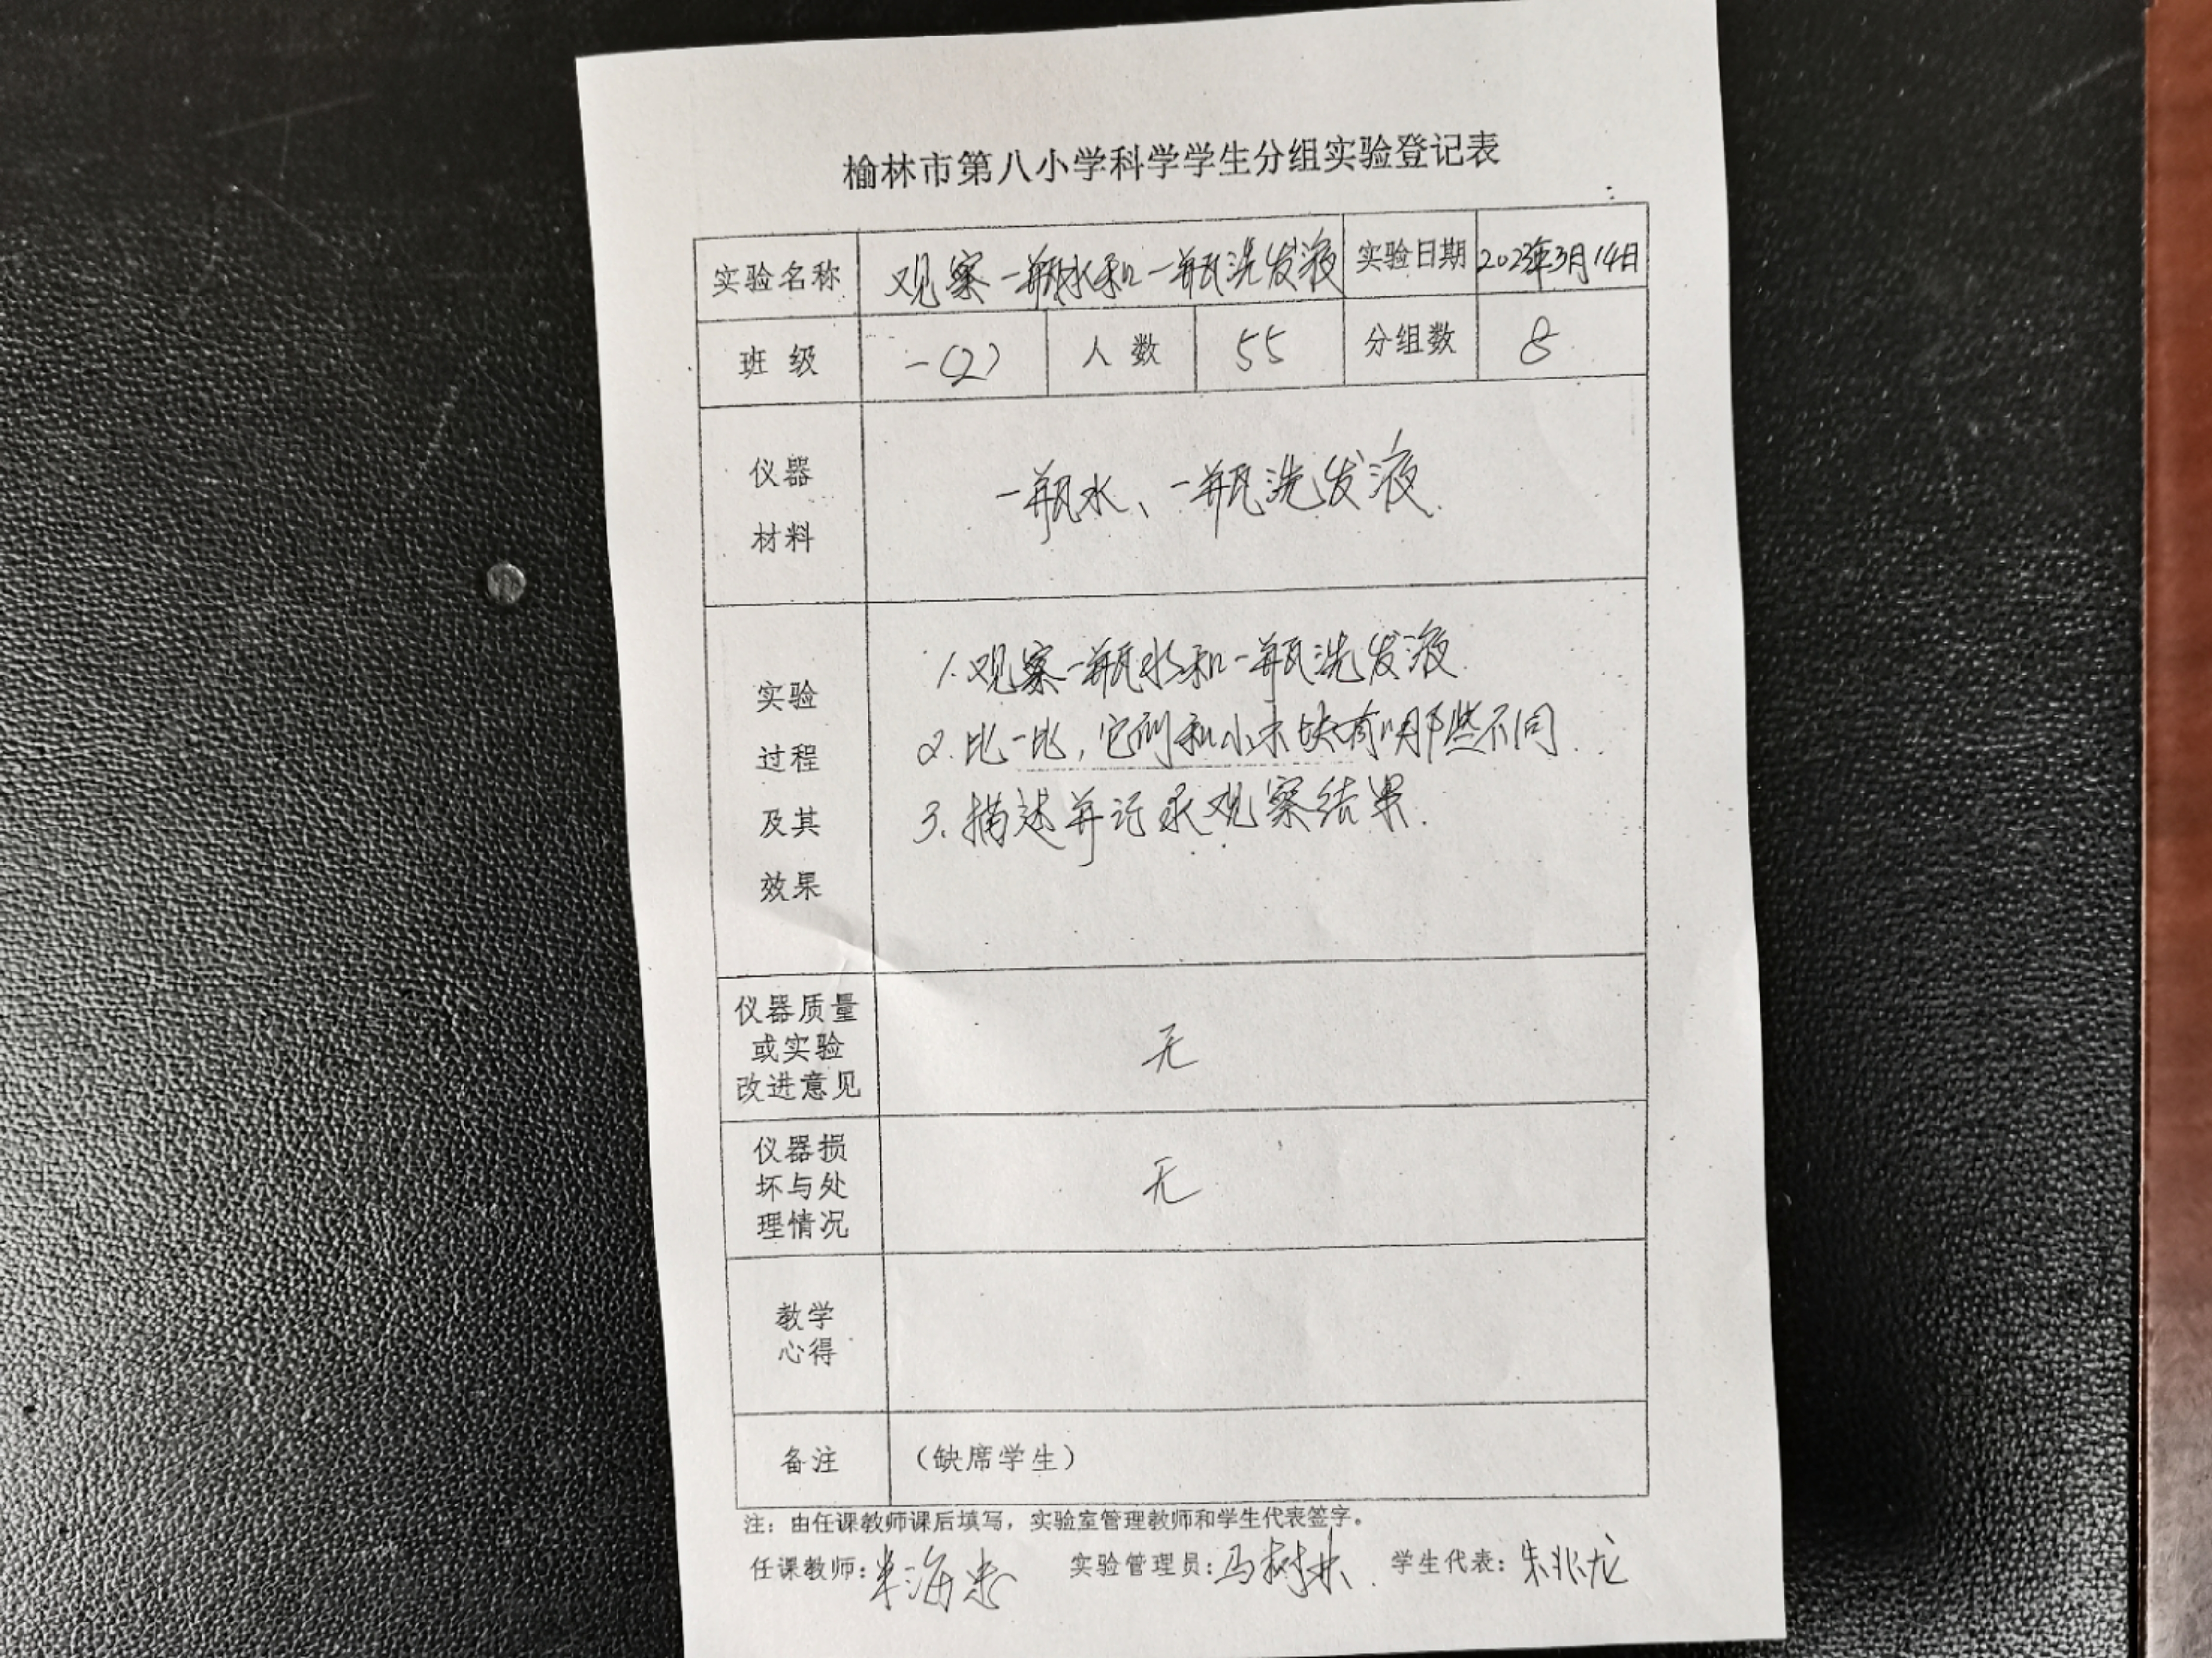 榆林市第八小学科学学生分组实验登记表
实验名称 观察一瓶水和一瓶洗发液 实验日期 2023年3月14日
班 级 一(2) 人 数 55 分组数 8
仪器
材料
一瓶水、一瓶洗发液.
实验
过程
及其
效果
1.观察一瓶水和一瓶洗发液.
2.比一比,它们和小木块有哪些不同.
3.描述并记录观察结果.
仪器质量
或实验
改进意见
无
仪器损
坏与处
理情况
无
教学
心得
备注 （缺席学生）
注：由任课教师课后填写，实验室管理教师和学生代表签字。
任课教师: 实验管理员:马树林. 学生代表:朱兆龙